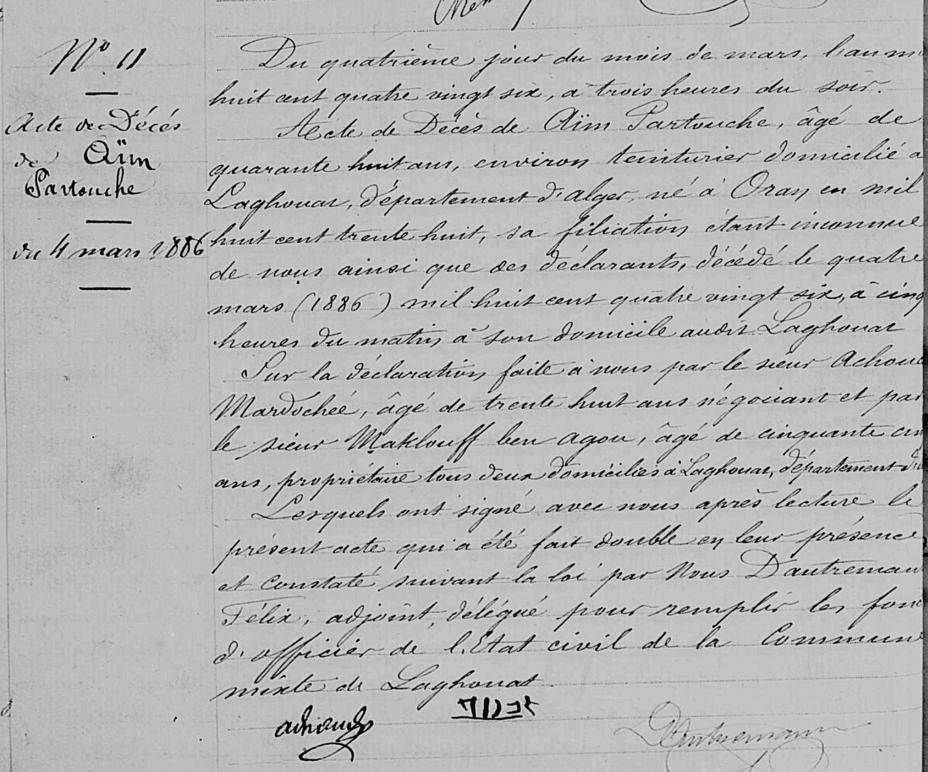 Nº 11
Acte de Décés
de Aïm
Partouche
du 4 mars 1886
Du quatrième jour du mois de mars, l'an m
huit cent quatre vingt six, a trois heures du soir.
Acte de Décès de Aïm Partouche, âgé de
quarante huit ans, environ teinturier domicilié a
Laghouat, département d'alger, né à Oran en mil
huit cent trente huit, sa filiation étant inconnue
de nous ainsi que des déclarants, décédé le quatre
mars (1886) mil huit cent quatre vingt six, à cinq
heures du matin à son domicile audit Laghouat
Sur la déclaration faite à nous par le sieur Achou
Mardochée, âgé de trente huit ans négociant et par
le sieur Maklouff ben Agou, âgé de cinquante cin
ans, propriétaire tous deux domiciliés à Laghouat, département d'
Lesquels ont signé avec nous après lecture le
présent acte qui a été fait double en leur présence
et constaté suivant la loi par Nous Dautreman
Félix, adjoint, délégué pour remplir les fonc
d'officier de l'Etat civil de la Commune
mixte de Laghouat